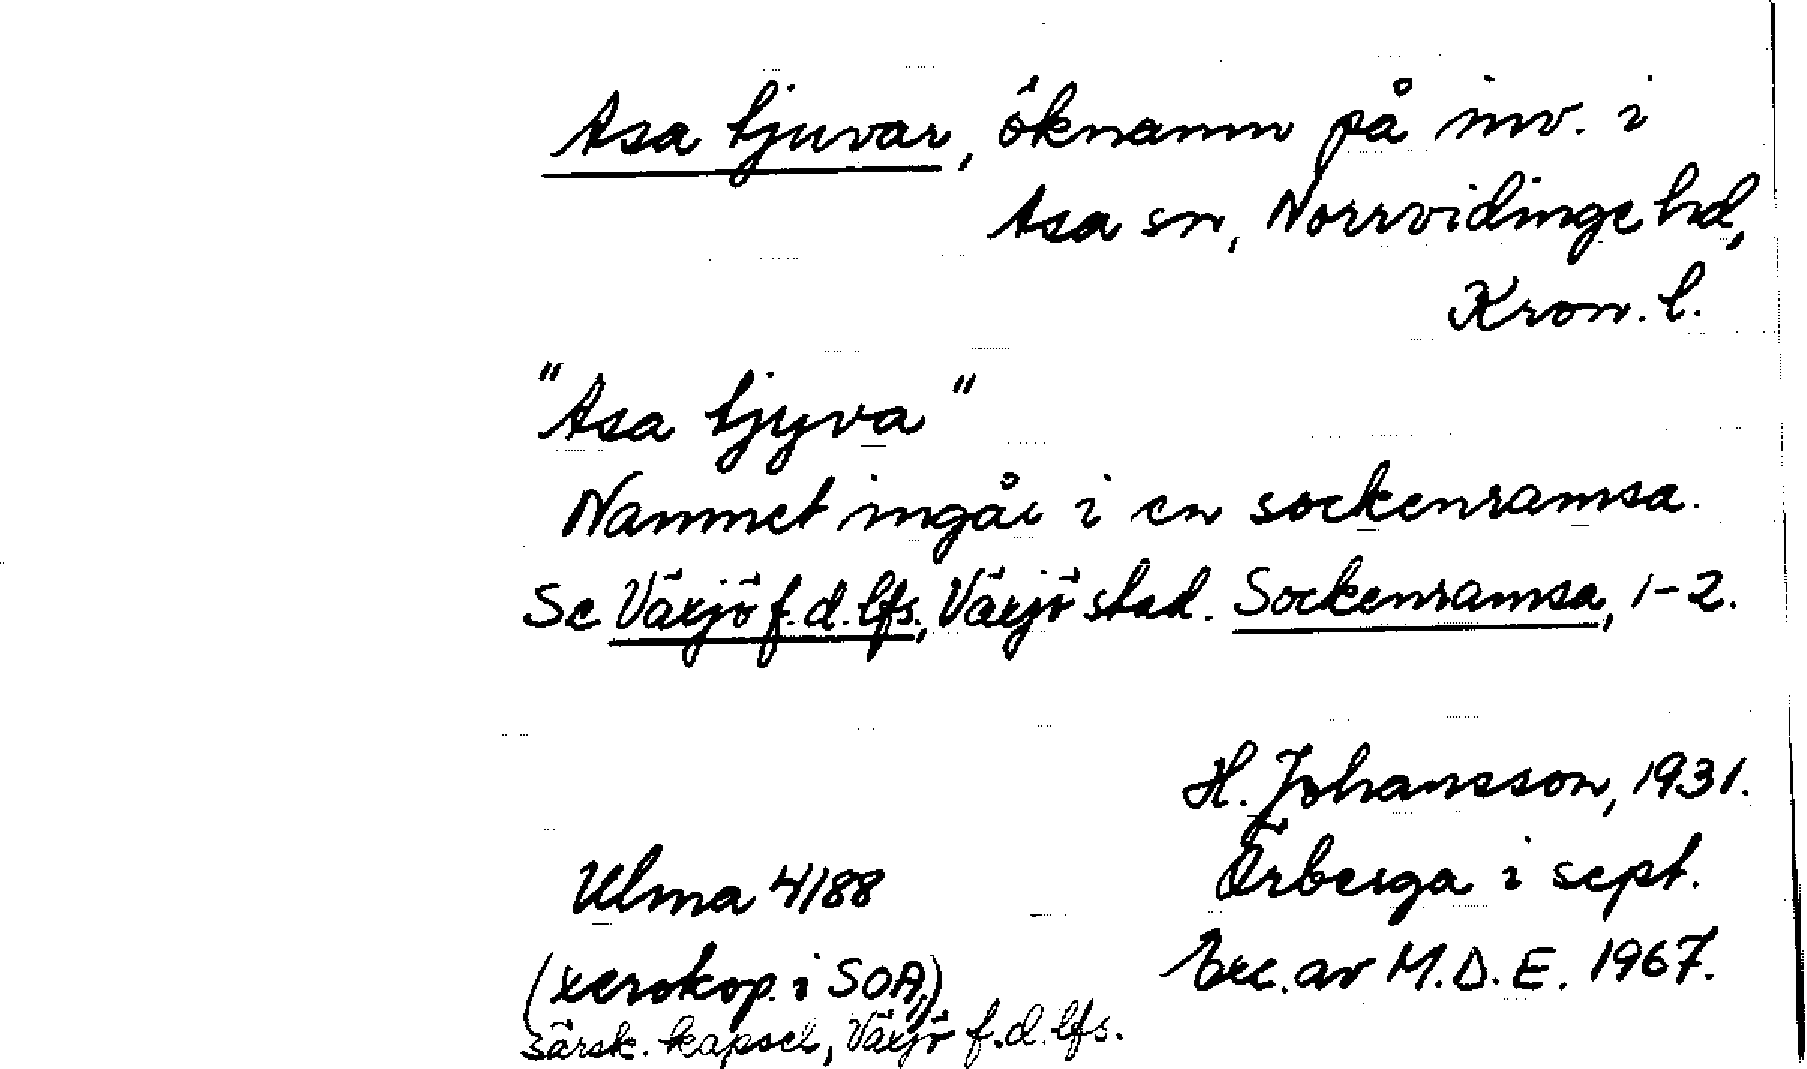 Asa tjuvar, öknamn på inv. i
Asa sn, Norrvidinge hd,
Kron. l.
"Asa tjyva"
Namnet ingår i en sockenramsa.
Se Växjö f.d. lfs., Växjö stad. Sockenramsa, 1-2.
H. Johansson, 1931.
Örberga i sept.
Ulma 4188
Exc. av M.D.E. 1967.
(xerokop. i SOA,)
särsk. kapsel, Växjö f.d. lfs.